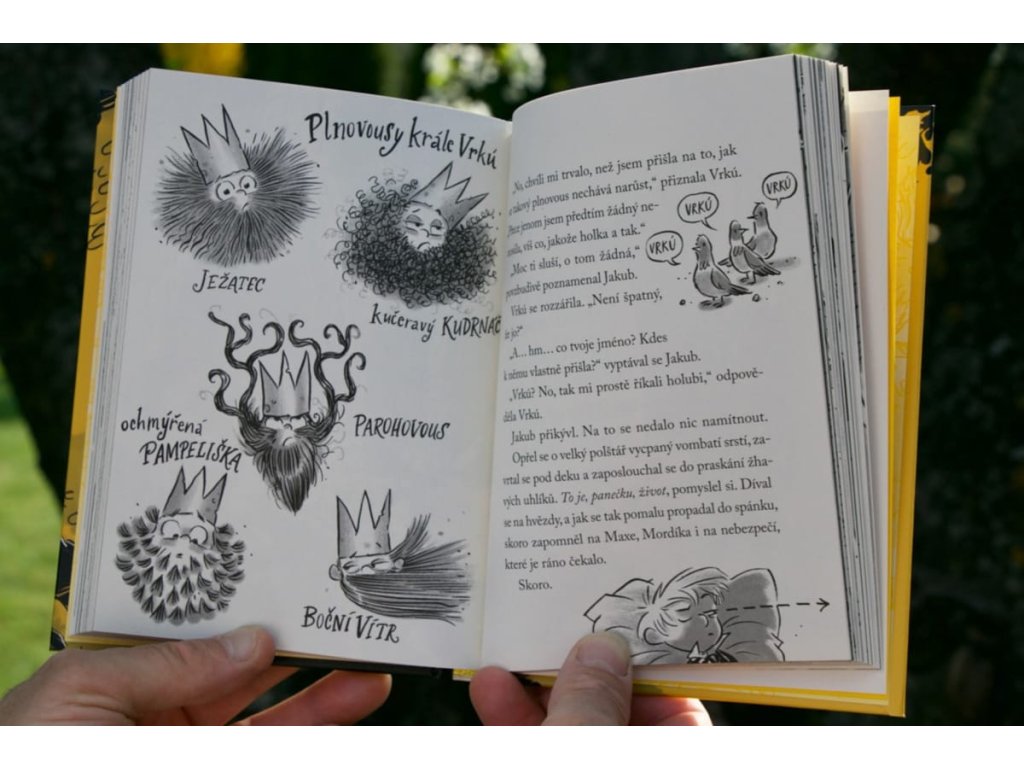 Plnovousy krále Vrků
JEŽATEC
kučeravý KUDRNÁČ
ochmýřená
PAMPELIŠKA
PAROHOVOUS
BOČNÍ VÍTR
„No, chvíli mi trvalo, než jsem přišla na to, jak
takový plnovous nechává narůst,“ přiznala Vrků.
jenom jsem předtím žádný ne-
víš co, jakože holka a tak.“
„Moc ti sluší, o tom žádná,“
povzbudivě poznamenal Jakub.
Vrků se rozzářila. „Není špatný,
jo?“
„A... hm... co tvoje jméno? Kdes
k němu vlastně přišla?“ vyptával se Jakub.
„Vrků? No, tak mi prostě říkali holubi,“ odpově-
děla Vrků.
Jakub přikývl. Na to se nedalo nic namítnout.
Opřel se o velký polštář vycpaný vombatí srstí, za-
vrtal se pod deku a zaposlouchal se do praskání žha-
vých uhlíků. To je, panečku, život, pomyslel si. Díval
se na hvězdy, a jak se tak pomalu propadal do spánku,
skoro zapomněl na Maxe, Mordíka i na nebezpečí,
které je ráno čekalo.
Skoro.
VRKÚ
VRKÚ
VRKÚ